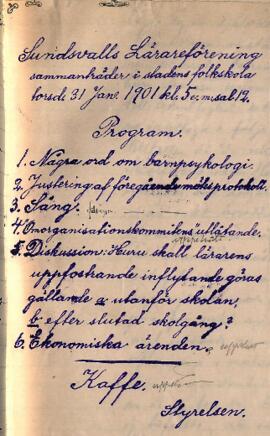 Sundsvalls Lärareförening
sammanträder i stadens folkskola
torsd. 31 Jan. 1901 kl. 5 e.m. sal 12.
Program.
1. Några ord om barnpsykologi.
2. Justering af föregående mötesprotokoll.
3. Sång.
4. Omorganisationskommiténs utlåtande.
5. Diskussion: Huru skall lärarens
uppfostrande inflytande göras
gällande a utanför skolan,
b efter slutad skolgång?
6. Ekonomiska ärenden. uppskot
Kaffe.
Styrelsen.